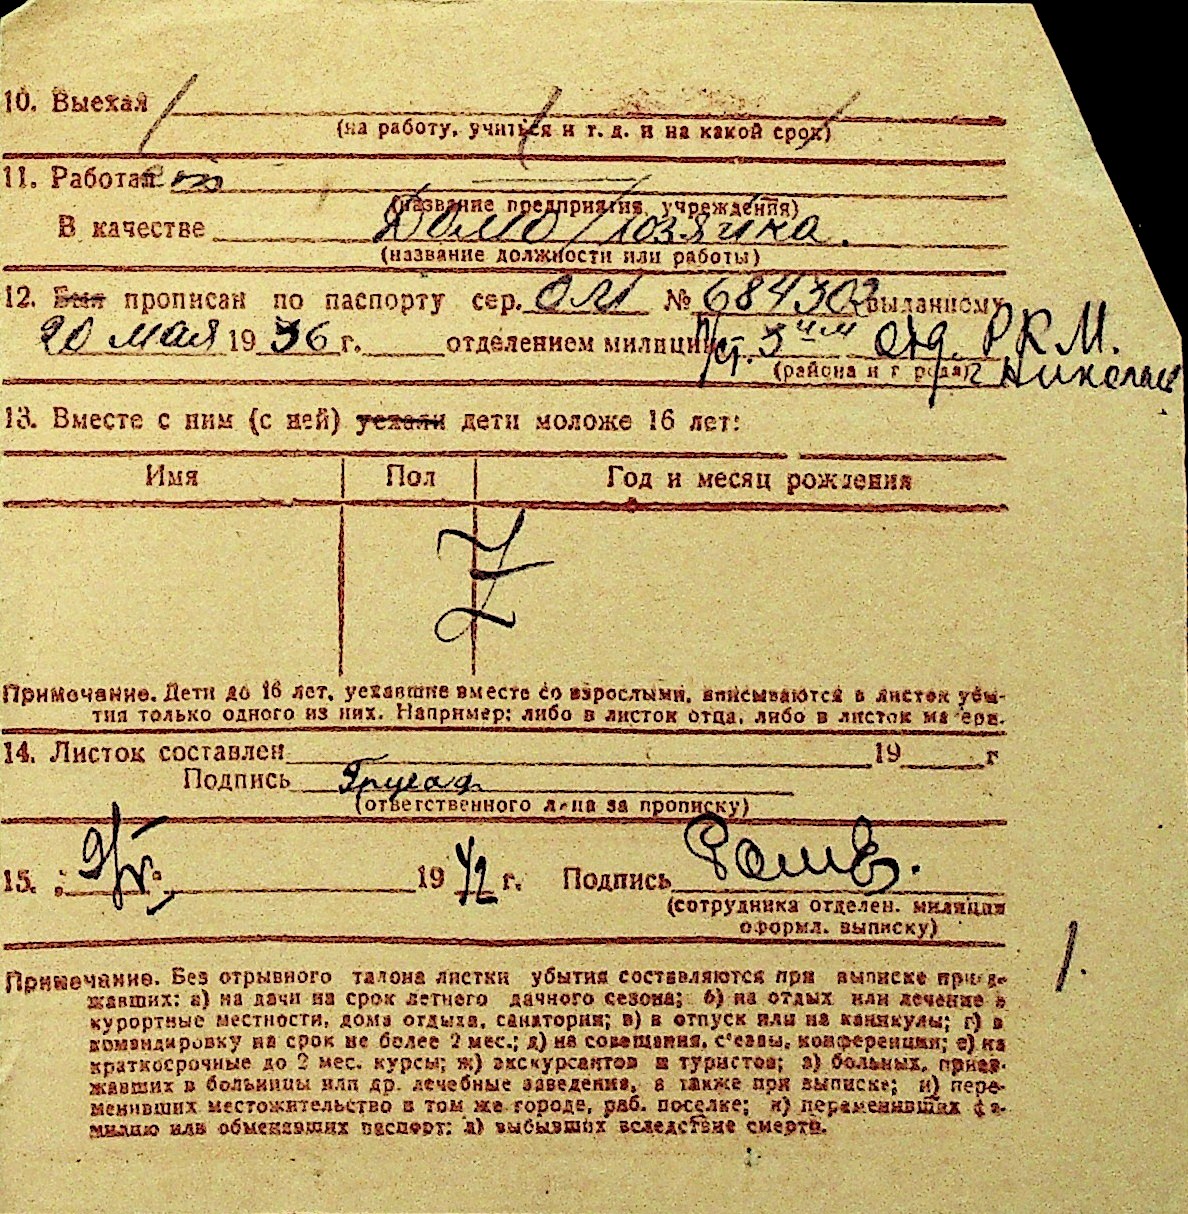 10. Выехал
(на работу, учиться и т. д. и на какой срок)
11. Работал
(название предприятия, учреждения)
В качестве Домо/хозяйка.
(название должности или работы)
12. Был прописан по паспорту сер. ОМ № 684302 выданному
20 мая 1936 г. отделением милиции ст. 3 отд. Р.К.М.
(района и города) г Николаев
13. Вместе с ним (с ней) уехали дети моложе 16 лет:
Имя Пол Год и месяц рождения
Примечание. Дети до 16 лет, уехавшие вместе со взрослыми, вписываются в листок убы-
тия только одного из них. Например: либо в листок отца, либо в листок матери.
14. Листок составлен 19 г
Подпись
(ответственного лица за прописку)
15. 19 42 г. Подпись
(сотрудника отделен. милиции
оформл. выписку)
1.
Примечание. Без отрывного талона листки убытия составляются при выписке приез-
жавших: а) на дачи на срок летнего дачного сезона; б) на отдых или лечение в
курортные местности, дома отдыха, санатории; в) в отпуск или на каникулы; г) в
командировку на срок не более 2 мес.; д) на совещания, с'езды, конференции; е) на
краткосрочные до 2 мес. курсы; ж) экскурсантов и туристов; з) больных, приез-
жавших в больницы или др. лечебные заведения, а также при выписке; и) пере-
менивших местожительство в том же городе, раб. поселке; к) переменивших фа-
милию или обменявших паспорт; л) выбывших вследствие смерти.